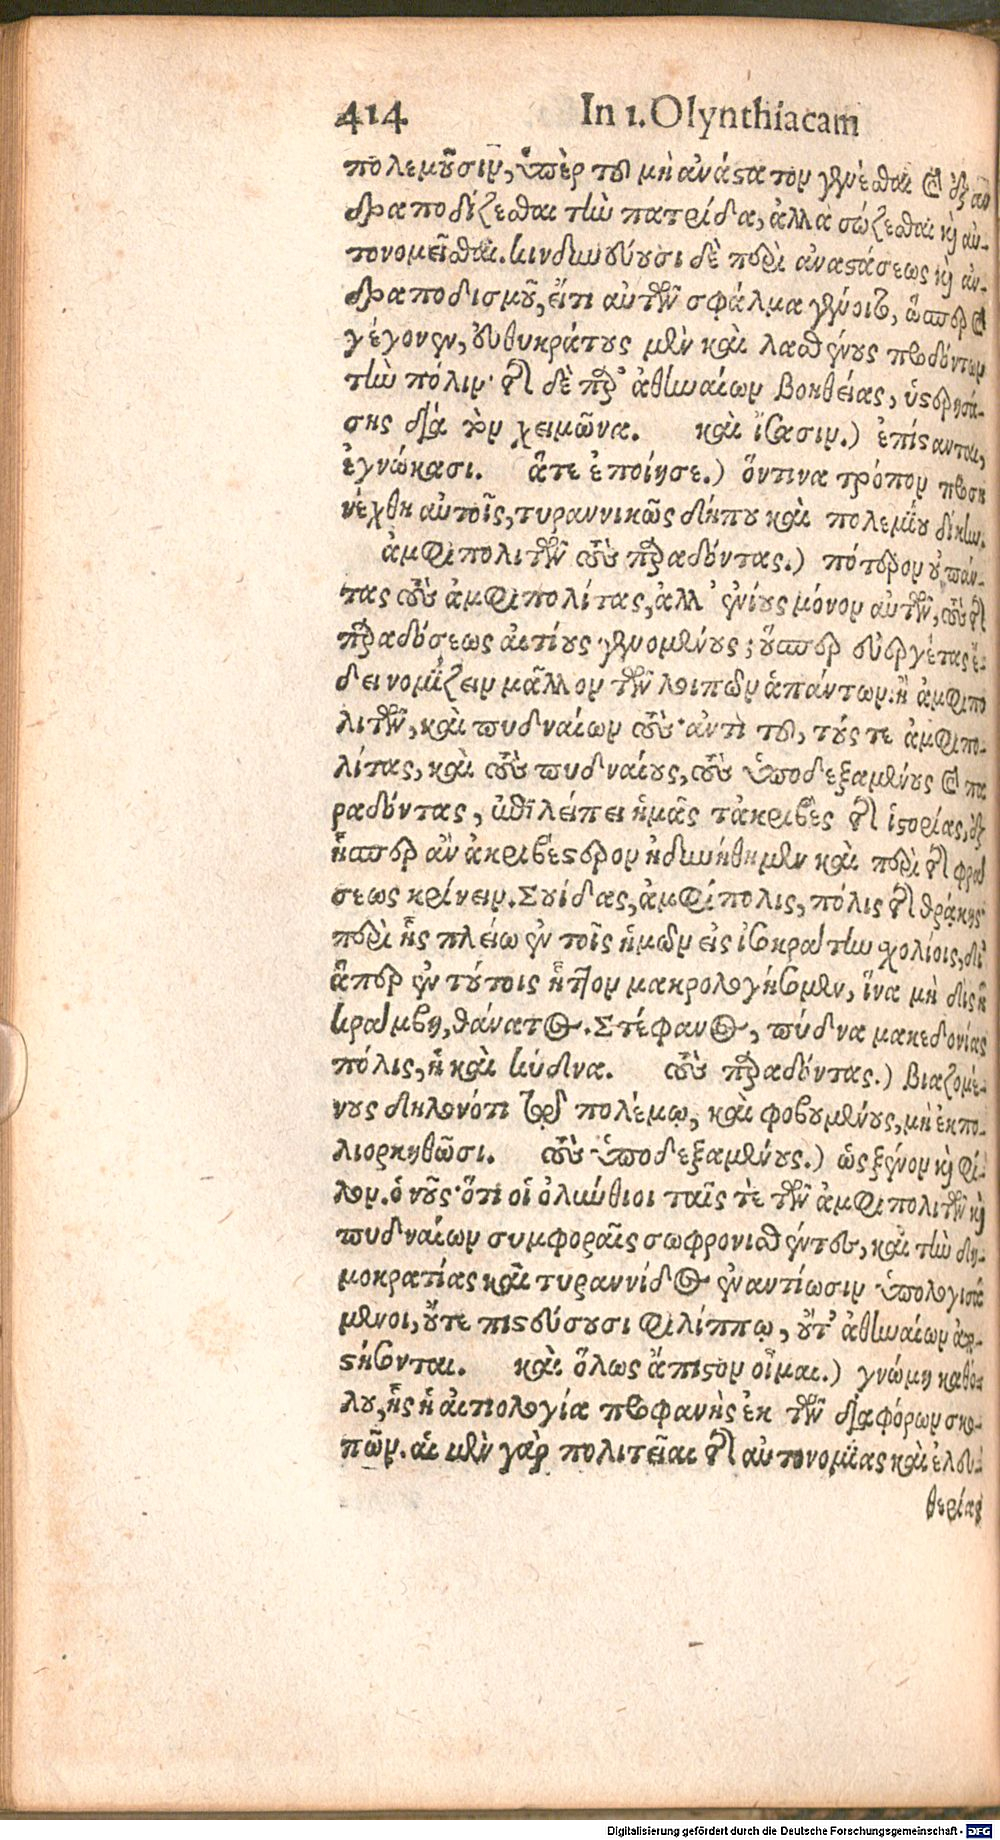 414 In 1. Olynthiacam
πολεμοῦσιν, ὑπὲρ τοῦ μὴ ἀνάστατον γενέσθαι καὶ ἐξαν
δραποδίζεσθαι τὴν πατρίδα, ἀλλὰ σώζεσθαι καὶ αὐ-
τονομεῖσθαι. κινδυνεύουσι δὲ περὶ ἀναστάσεως καὶ ἀν-
δραποδισμοῦ, εἴ τι αὐτῶν σφάλμα γένοιτο, ὥσπερ καὶ
γέγονεν, εὐθυκράτους μὲν καὶ λασθένους προδόντων
τὴν πόλιν· τῆς δὲ παρ' ἀθηναίων βοηθείας, ὑστερησά-
σης διὰ τὸν χειμῶνα. καὶ ἴσασιν.) ἐπίστανται,
ἐγνώκασι. ἅτε ἐποίησε.) ὅντινα τρόπον προση
νέχθη αὐτοῖς, τυραννικῶς δήπου καὶ πολεμίου δίκην.
ἀμφιπολιτῶν τοὺς παραδόντας.) πότερον οὐ πάν-
τας τοὺς ἀμφιπολίτας, ἀλλ' ἐνίους μόνον αὐτῶν, τοὺς τῆς
παραδόσεως αἰτίους γενομένους; οὕσπερ εὐεργέτας ἔ-
δει νομίζειν μᾶλλον τῶν λοιπῶν ἁπάντων. ἢ ἀμφιπο
λιτῶν, καὶ πυδναίων τοὺς· ἀντὶ τοῦ, τούς τε ἀμφιπο-
λίτας, καὶ τοὺς πυδναίους, τοὺς ὑποδεξαμένους καὶ πα
ραδόντας, ἐπιλείπει ἡμᾶς τἀκριβὲς τῆς ἱστορίας, ἐξ
ἧσπερ ἂν ἀκριβέστερον ἠδυνήθημεν καὶ περὶ τῆς φρά
σεως κρίνειν. Σουίδας, ἀμφίπολις, πόλις τῆς θρᾴκης·
περὶ ἧς πλείω ἐν τοῖς ἡμῶν εἰς ἰσοκράτην σχολίοις, δι'
ἅπερ ἐν τούτοις ἧττον μακρολογήσομεν, ἵνα μὴ δὶς ἡ
κράμβη, θάνατος. Στέφανος, πύδνα μακεδονίας
πόλις, ἡ καὶ κύδνα. τοὺς παραδόντας.) βιαζομέ-
νους δηλονότι τῷ πολέμῳ, καὶ φοβουμένους, μὴ ἐκπο-
λιορκηθῶσι. τοὺς ὑποδεξαμένους.) ὡς ξένον καὶ φί-
λον. ὁ νοῦς· ὅτι οἱ ὀλύνθιοι ταῖς τὲ τῶν ἀμφιπολιτῶν καὶ
πυδναίων συμφοραῖς σωφρονισθέντες, καὶ τὴν δη-
μοκρατίας καὶ τυραννίδος ἐναντίωσιν ὑπολογισά
μενοι, οὔτε πιστεύσουσι φιλίππῳ, οὔτ' ἀθηναίων ἀπ-
στήσονται. καὶ ὅλως ἄπιστον οἶμαι.) γνώμη καθό-
λου, ἧς ἡ αἰτιολογία προφανὴς ἐκ τῶν διαφόρων σκο-
πῶν. αἱ μὲν γὰρ πολιτεῖαι τῆς αὐτονομίας καὶ ἐλευ-
θερίας
Digitalisierung gefördert durch die Deutsche Forschungsgemeinschaft - DFG